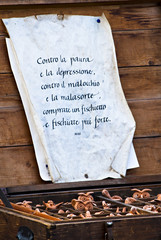 Contro la paura
e la depressione,
contro il malocchio
e la malasorte,
comprate un fischietto
e fischiate più forte.